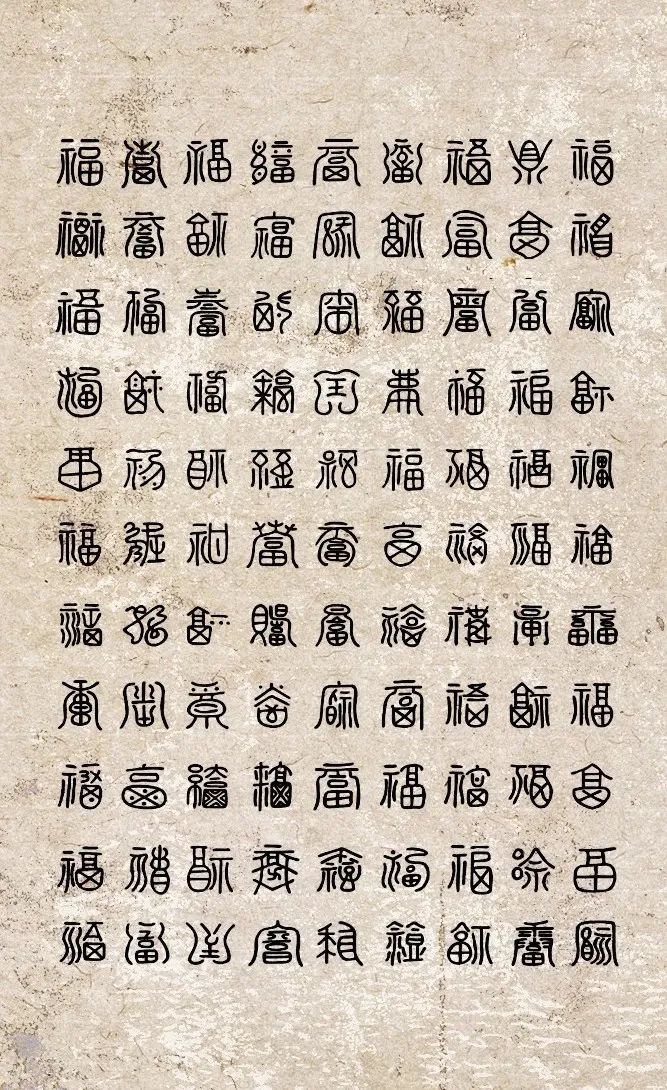 福福福福福福福福福
福福福福福福福福福
福福福福福福福福福
福福福福福福福福福
福福福福福福福福福
福福福福福福福福福
福福福福福福福福福
福福福福福福福福福
福福福福福福福福福
福福福福福福福福福
福福福福福福福福福